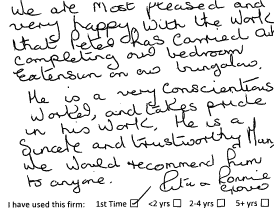 We are most pleased and
very happy with the work
that Peter has carried out
completing our bedroom
Extension on our bungalow.
He is a very conscientious
worker, and takes pride
in his work. He is a
Sincere and trustworthy Man,
We would recommend him
to anyone.
Ronnie
I have used this firm: 1st Time ☑ <2 yrs ☐ 2-4 yrs ☐ 5+ yrs ☐